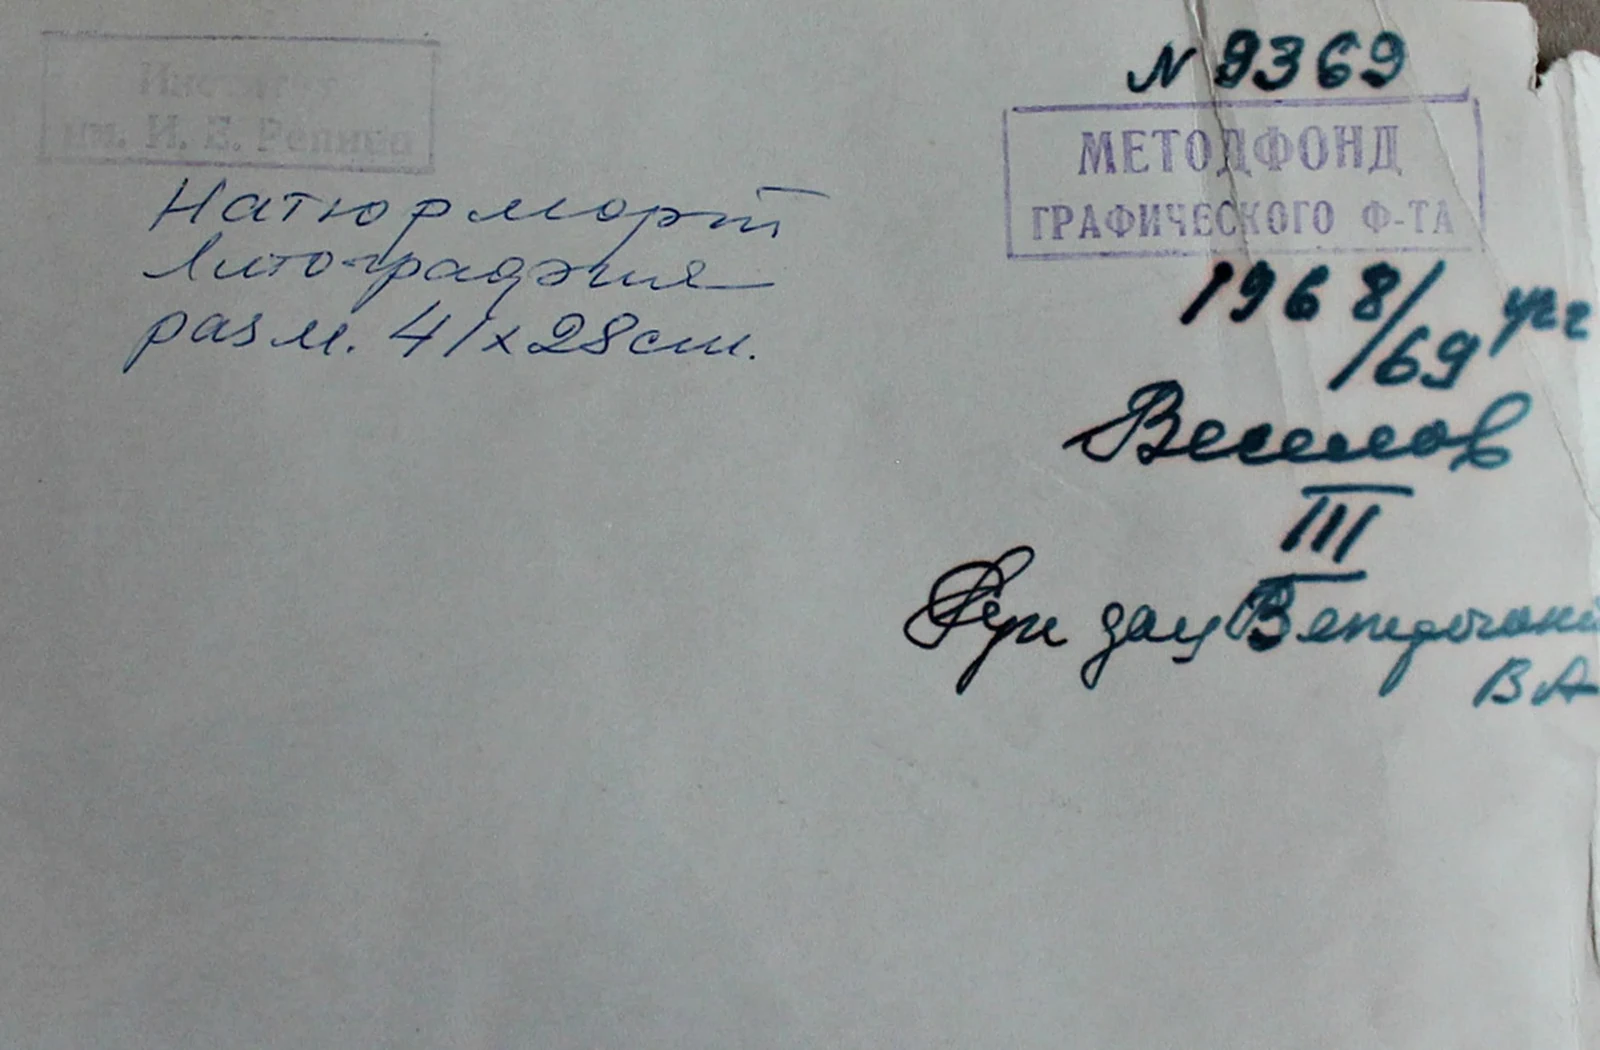 Институт
им. И. Е. Репина
Натюрморт
Литография
разм. 41х28см.
N 9369
МЕТОДФОНД
ГРАФИЧЕСКОГО Ф-ТА
1968/69 уч г
Веселов
III
Рук доц
ВА